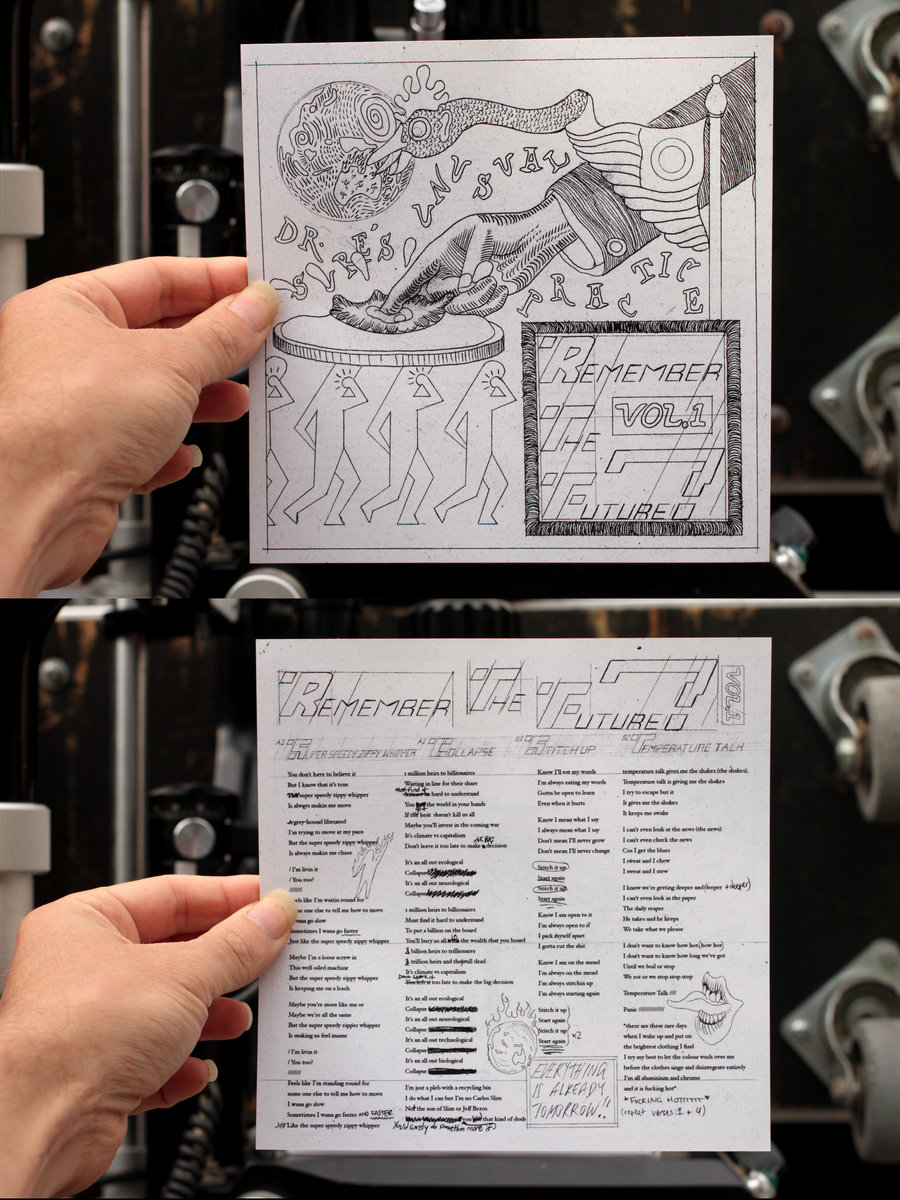 DR. SURE'S UNUSUAL
PRACTICE
REMEMBER
VOL.1
THE
FUTURE
REMEMBER THE FUTURE VOL.1
A1 SUPER SPEEDY ZIPPY WHIPPER
You don't have to believe it
But I know that it's true
super speedy zippy whipper
Is always makin me move
A grey-hound liberated
I'm trying to move at my pace
But the super speedy zippy whipper
Is always makin me chase
/ I'm livin it
/ You too?
/////////
Feels like I'm waitin round for
some one else to tell me how to move
I wana go slow
Sometimes I wana go faster
Just like the super speedy zipper whipper
Maybe I'm a loose screw in
This well oiled machine
But the super speedy zippy whipper
Is keeping me on a leash
Maybe you're more like me or
Maybe we're all the same
But the super speedy zipper zipper
Is making us feel insane
/ I'm livin it
/ You too?
/////////
Feels like I'm standing round for
some one else to tell me how to move
I wana go slow
Sometimes I wana go faster AND FASTER
JUST Like the super speedy zippy whipper
A2 COLLAPSE
1 million heirs to billionaires
Waiting in line for their share
Must find it hard to understand
You got the world in your hands
If the heat doesn't kill us all
Maybe you'll invest in the coming war
It's climate vs capitalism
Don't leave it too late to make the BIG decision
It's an all out ecological
Collapse
It's an all out neurological
Collapse
1 million heirs to billionaires
Must find it hard to understand
To put a billion on the board
You'll bury us all with the wealth that you hoard
1 billion heirs to trillionaires
1 trillion heirs and they all dead
It's climate vs capitalism
Dont leave it too late to make the big decision
It's an all out ecological
Collapse
It's an all out neurological
Collapse
It's an all out technological
Collapse
It's an all out biological
Collapse
I'm just a pleb with a recycling bin
I do what I can but I'm no Carlos Slim
Not the son of Slim or Jeff Bezos
you had that kind of dosh
You'd surely do somethin more if)
B1 STITCH UP
Know I'll eat my words
I'm always eating my words
Gotta be open to learn
Even when it hurts
Know I mean what I say
I always mean what I say
Don't mean I'll never grow
Don't mean I'll never change
Stitch it up
Start again
Stitch it up
Start again
Know I am open to it
I'm always open to it
I pick myself apart
I gotta cut the shit
Know I am on the mend
I'm always on the mend
I'm always stitchin up
I'm always starting again
Stitch it up
Start again
Stitch it up
Start again x2
EVERYTHING
IS ALREADY
TOMORROW."
B2 TEMPERATURE TALK
temperature talk gives me the shakes (the shakes).
Temperature talk is giving me the shakes
I try to escape but it
It gives me the shakes
It keeps me awake
I can't even look at the news (the news)
I can't even check the news
Cos I get the blues
I sweat and I chew
I sweat and I stew
I know we're getting deeper and(deeper + deeper)
I can't even look in the paper
The daily reaper
He takes and he keeps
We take what we please
I don't want to know how hot (how hot)
I don't want to know how long we've got
Until we boil or stop
We rot or we stop stop stop
Temperature Talk /////
Panic /////////
*there are these rare days
when I wake up and put on
the brightest clothing I find
I try my best to let the colour wash over me
before the clothes singe and disintegrate entirely
I'm all aluminium and chrome
and it is fucking hot*
*FUCKING HOTTTTTT*
(repeat verses 1 + 4)